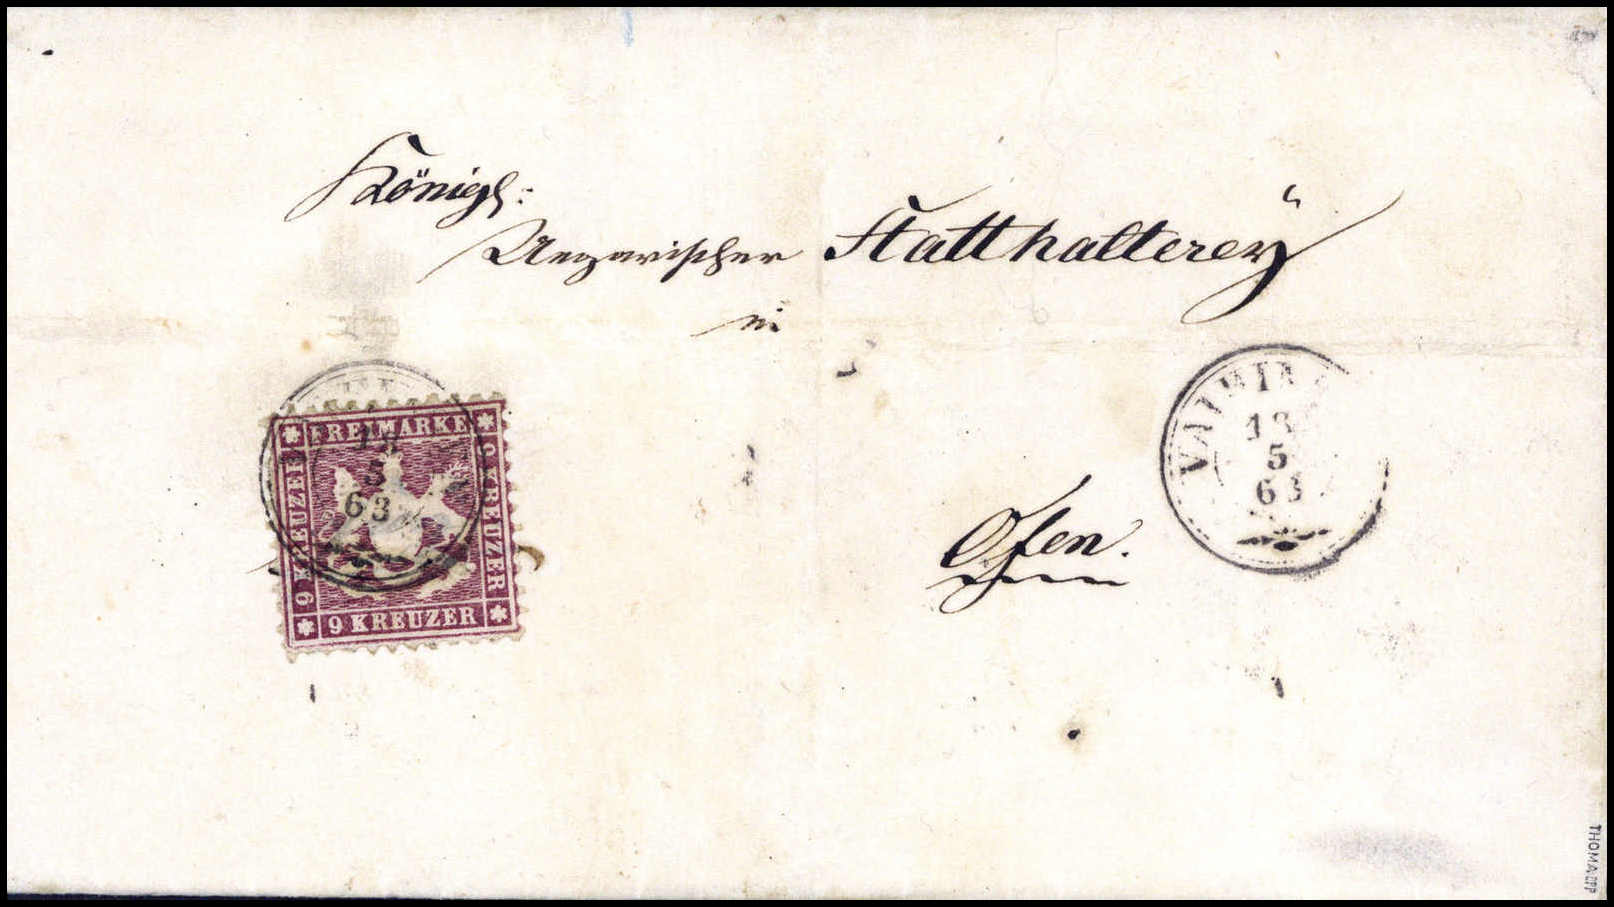 Königl:
Ungarischer Statthalterey
in
Ofen.
FREIMARKE
9 KREUZER
9 KREUZER
9 KREUZER
18
5
63
VAIHIN
18
5
63
THOMA BPP